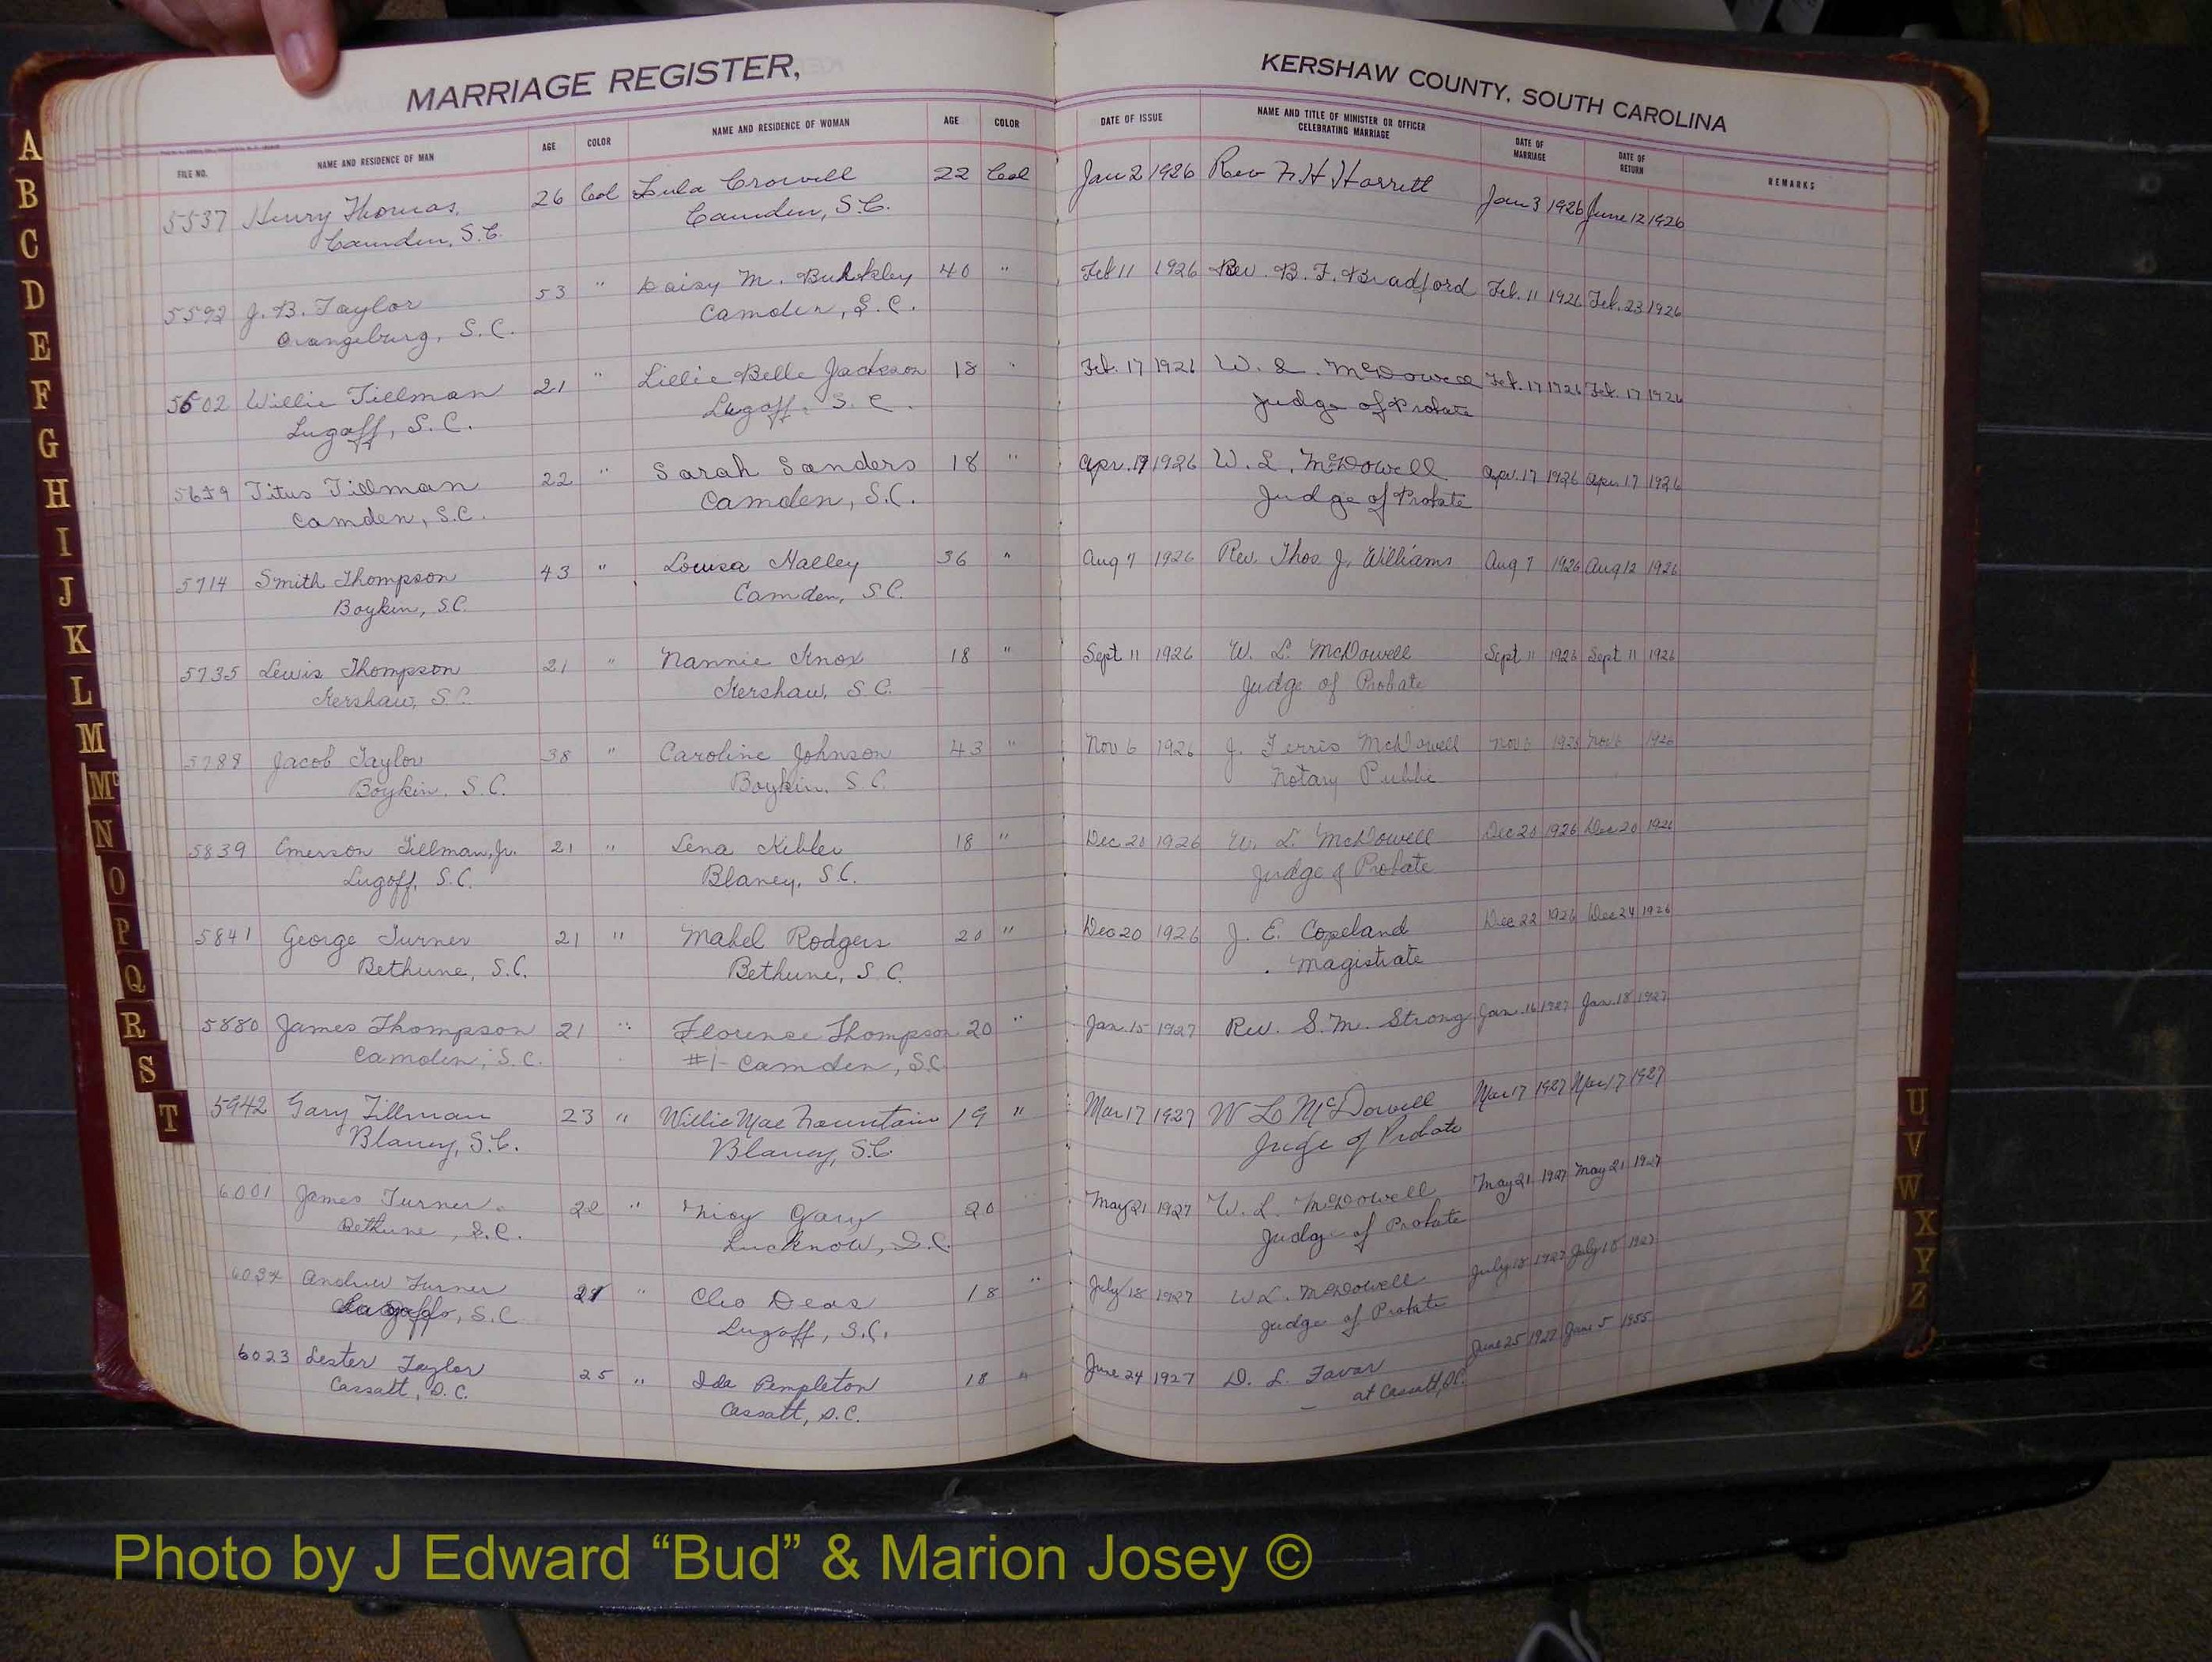 MARRIAGE REGISTER,
KERSHAW COUNTY, SOUTH CAROLINA
FILE NO. NAME AND RESIDENCE OF MAN AGE COLOR NAME AND RESIDENCE OF WOMAN AGE COLOR DATE OF ISSUE NAME AND TITLE OF MINISTER OR OFFICER CELEBRATING MARRIAGE DATE OF MARRIAGE DATE OF RETURN REMARKS
5537 Henry Thomas, 26 Col Lula Crowell 22 Col Jan 2 1926 Rev H Harrett Jan 3 1926 June 12 1926
Camden, S.C. Camden, S.C.
5592 J. B. Taylor 53 " Daisy M. 40 " Feb 11 1926 Rev. B. F. Bradford Feb. 11 1926 Feb. 23 1926
Orangeburg, S.C. Camden, S.C.
5602 Willie Tillman 21 " Lillie Belle Jackson 18 " Feb. 17 1926 W. L. McDowell Feb. 17 1926 Feb. 17 1926
Lugoff, S.C. Lugoff, S.C. Judge of Probate
Titus Tillman 22 " Sarah Sanders 18 " Apr. 1926 W. L. McDowell Apr. 17 1926 Apr 17 1926
Camden, S.C. Camden, S.C. Judge of Probate
5714 Smith Thompson 43 " Louisa Nalley 36 " Aug 7 1926 Rev. Thos. J. Williams Aug 7 1926 Aug 12 1926
Boykin, S.C. Camden, S.C.
5735 Lewis Thompson 21 " Nannie Knox 18 " Sept 11 1926 W. L. McDowell Sept 11 1926 Sept 11 1926
Kershaw, S.C. Kershaw, S.C. Judge of Probate
5788 Jacob Taylor 38 " Caroline Johnson 43 " Nov 6 1926 J. Ferris McDowell Nov 6 1926 Nov 6 1926
Boykin, S.C. Boykin, S.C. Notary Public
5839 Emerson Tillman, Jr. 21 " Lena Kibler 18 " Dec 20 1926 W. L. McDowell Dec 20 1926 Dec 20 1926
Lugoff, S.C. Blaney, S.C. Judge of Probate
5841 George Turner 21 " Mabel Rodgers 20 " Dec 20 1926 J. E. Copeland Dec 22 1926 Dec 24 1926
Bethune, S.C. Bethune, S.C. Magistrate
5880 James Thompson 21 " Florence Thompson 20 " Jan. 15 1927 Rev. S. M. Strong Jan. 16 1927 Jan. 18 1927
Camden, S.C. #1- Camden, S.C.
5942 Gary Tillman 23 " Willie Mae 19 " Mar 17 1927 W L McDowell Mar 17 1927 Mar 17 1927
Blaney, S.C. Blaney, S.C. Judge of Probate
6001 James Turner 22 " Gary 20 May 21 1927 W. L. McDowell May 21 1927 May 21 1927
Bethune, S.C. Lucknow, S.C. Judge of Probate
6034 Andrew Turner 21 " Cleo Deas 18 " July 18 1927 W. L. McDowell July 18 1927 July 18 1927
S.C. Lugoff, S.C. Judge of Probate
6023 Lester Taylor 25 " Ida Pempleton 18 " June 24 1927 D. L. Favar June 25 1927 June 5 1955
Cassatt, S.C. Cassatt, S.C. at Cassatt, S.C.
A
B
C
D
E
F
G
H
I
J
K
L
M
Mc
N
O
P
Q
R
S
T
U
V
W
X
Y
Z
Photo by J Edward “Bud” & Marion Josey ©